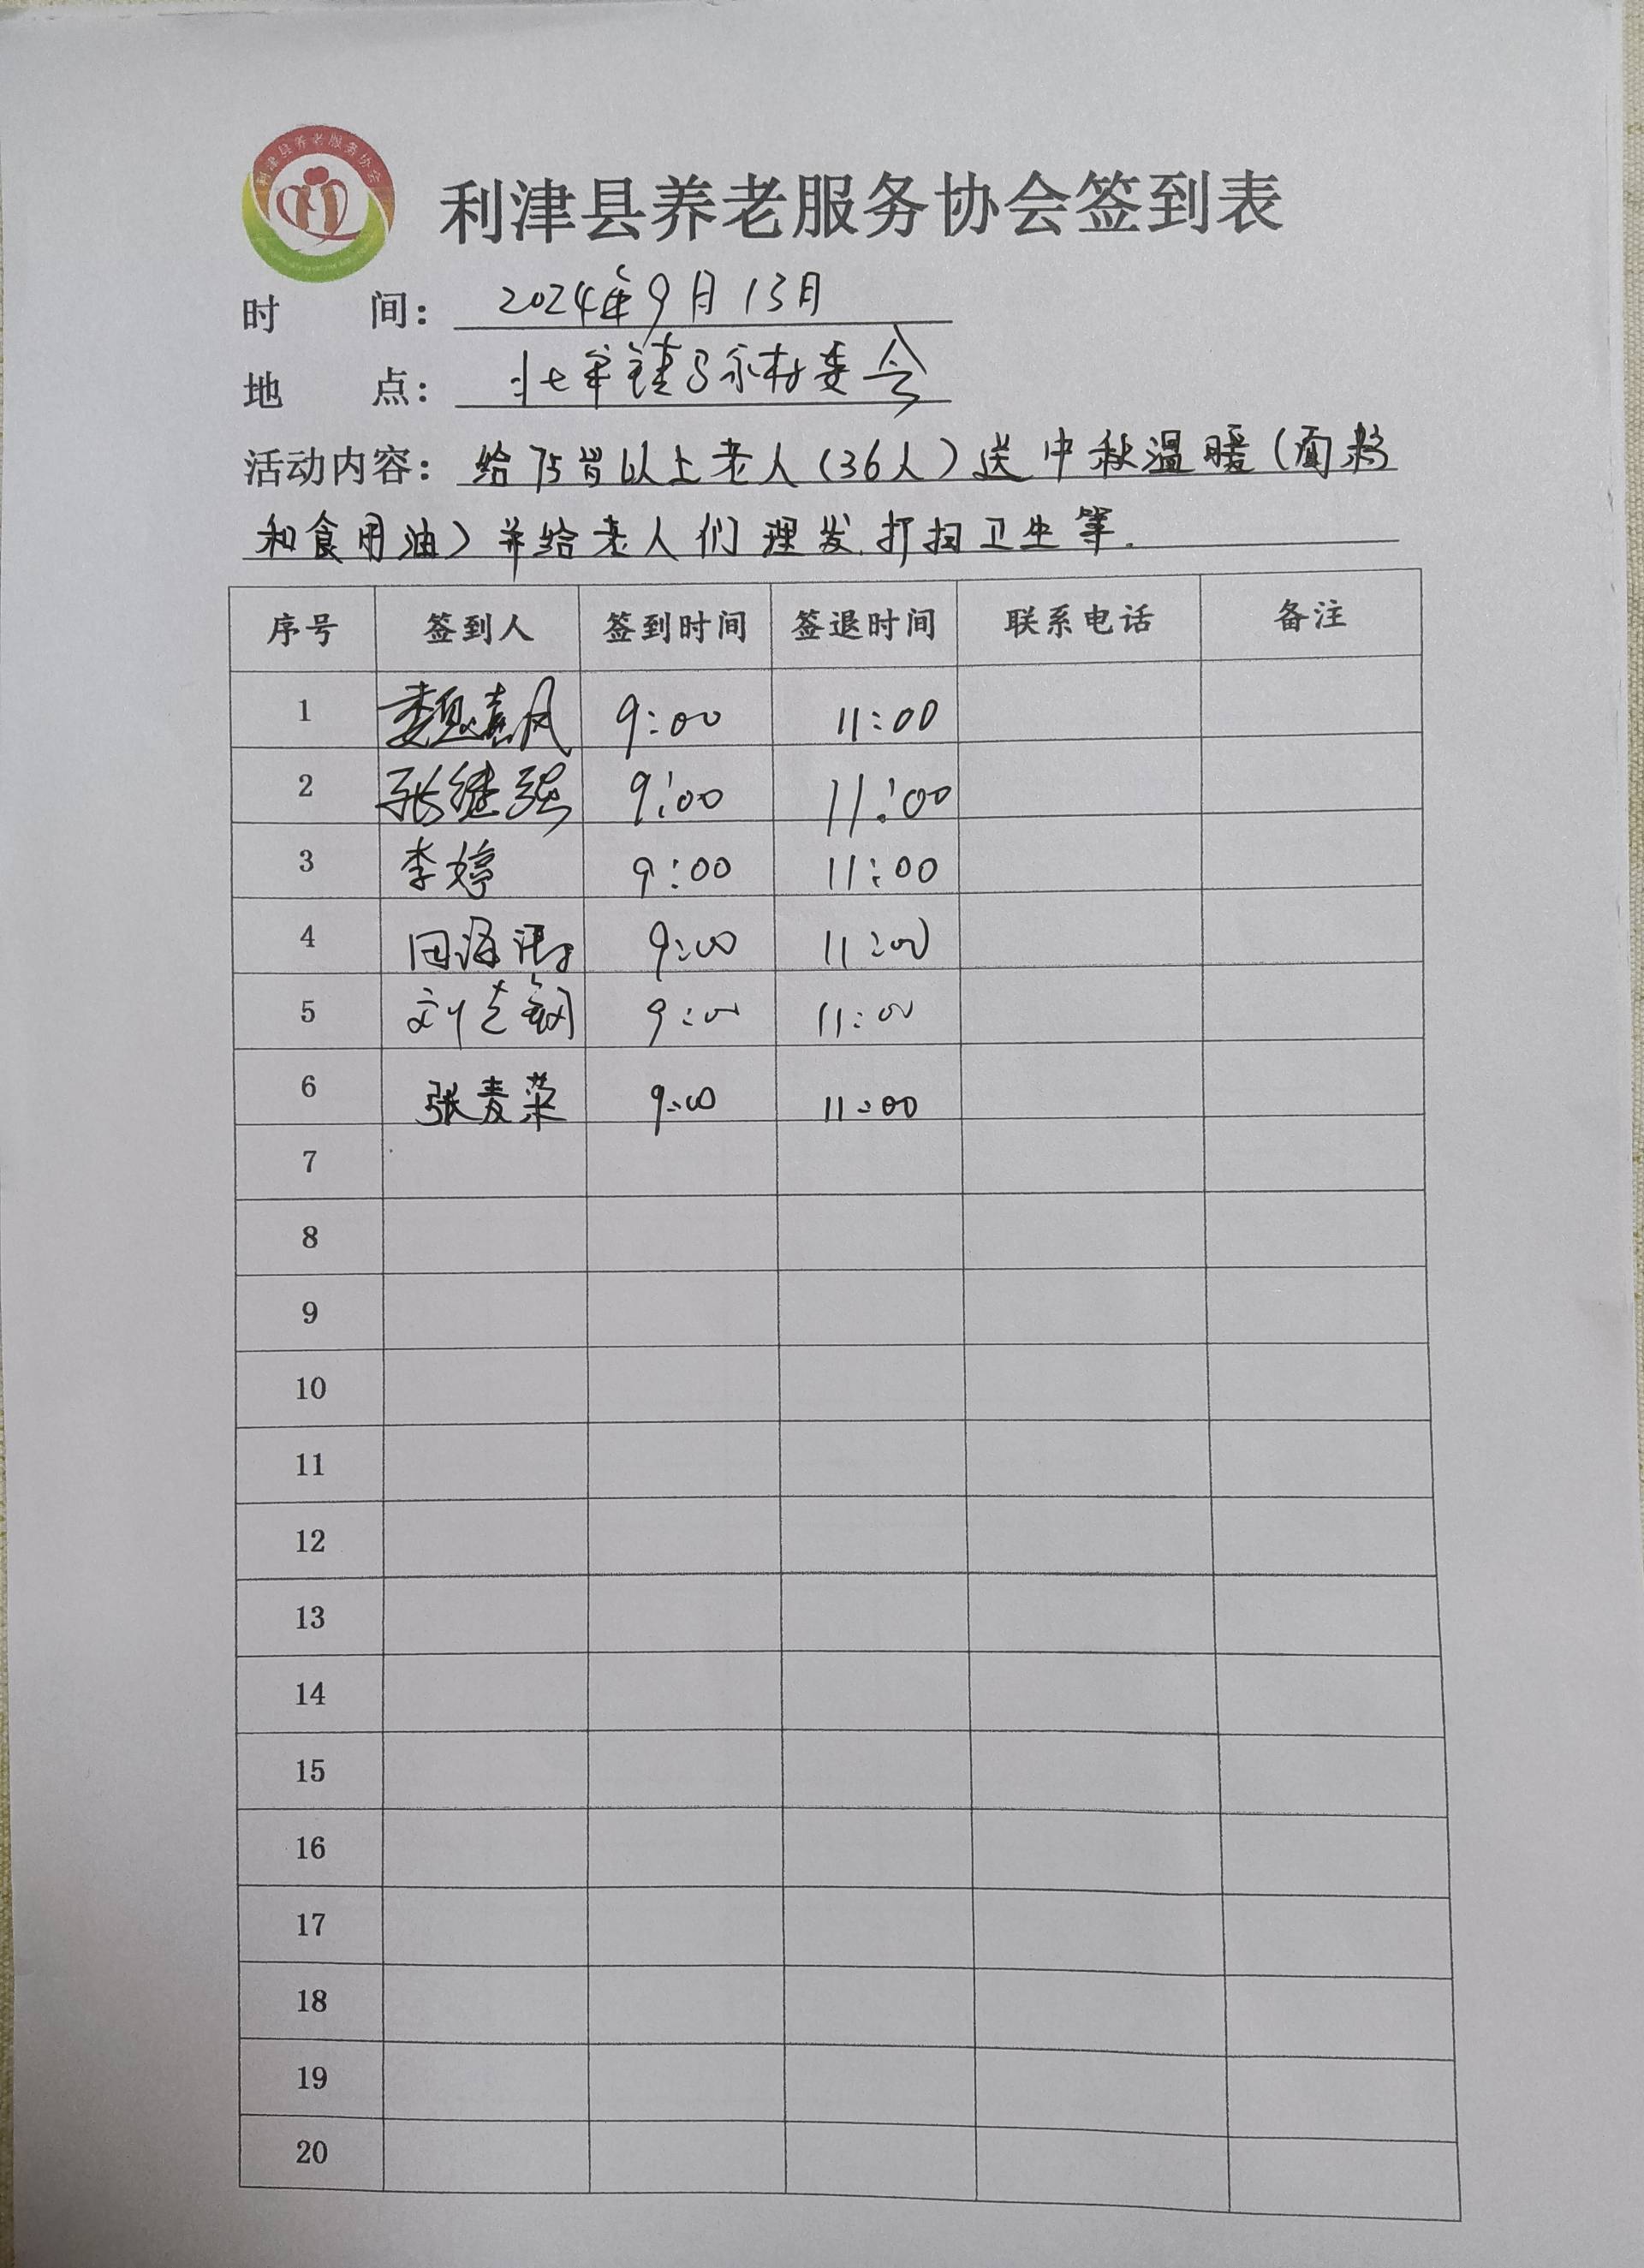 利津县养老服务协会
利津县养老服务协会签到表
时 间： 2024年9月13日
地 点： 北宋镇 村委会
活动内容： 给75岁以上老人（36人）送中秋温暖（面粉
和食用油）并给老人们理发.打扫卫生等.
序号 签到人 签到时间 签退时间 联系电话 备注
1 魏春风 9:00 11:00
2 张继强 9:00 11:00
3 李婷 9:00 11:00
4 田海 9:00 11:00
5 刘志钢 9:00 11:00
6 张麦菜 9:00 11:00
7
8
9
10
11
12
13
14
15
16
17
18
19
20